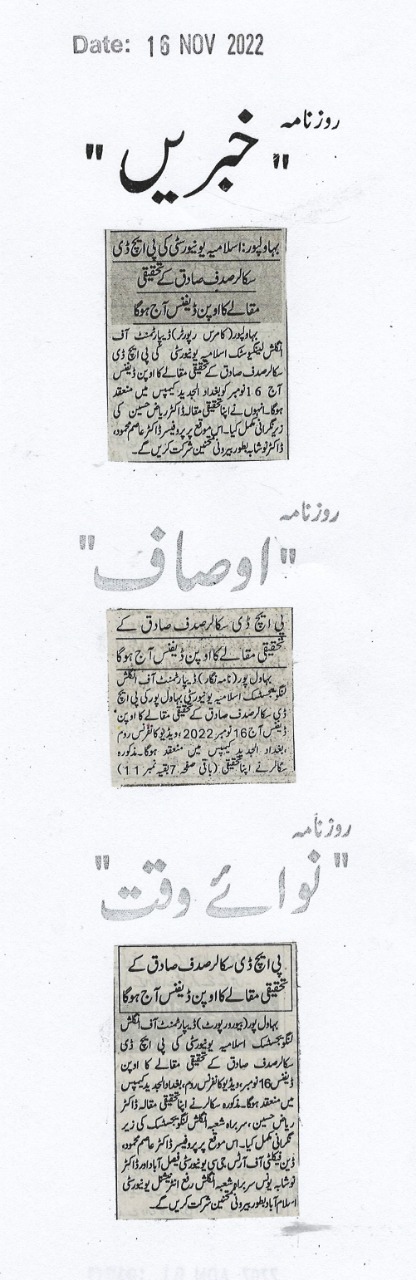 Date: 16 NOV 2022
روزنامہ
"خبریں"
بہاولپور: اسلامیہ یونیورسٹی کی پی ایچ ڈی
سکالر صدف صادق کے تحقیقی
مقالے کا اوپن ڈیفنس آج ہوگا
بہاولپور (کامرس رپورٹر) ڈیپارٹمنٹ آف
انگلش لینگویسٹک اسلامیہ یونیورسٹی کی پی ایچ ڈی
سکالر صدف صادق کے تحقیقی مقالے کا اوپن ڈیفنس
آج 16 نومبر کو بغداد الجدید کیمپس میں منعقد
ہوگا۔ انہوں نے اپنا تحقیقی مقالہ ڈاکٹر ریاض حسین کی
زیر نگرانی مکمل کیا۔ اس موقع پر پروفیسر ڈاکٹر عاصم محمود،
ڈاکٹر نوشابہ بطور بیرونی ممتحنین شرکت کریں گے۔
روزنامہ
"اوصاف"
پی ایچ ڈی سکالر صدف صادق کے
تحقیقی مقالے کا اوپن ڈیفنس آج ہوگا
بہاول پور (نامہ نگار) ڈیپارٹمنٹ آف انگلش
لنگویجسٹک اسلامیہ یونیورسٹی بہاول پور کی پی ایچ
ڈی سکالر صدف صادق کے تحقیقی مقالے کا اوپن
ڈیفنس آج 16 نومبر 2022، ویڈیو کانفرنس روم
، بغداد الجدید کیمپس میں منعقد ہوگا۔ مذکورہ
سکالر نے اپنا تحقیقی (باقی صفحہ 7 بقیہ نمبر 11)
روزنامہ
"نوائے وقت"
پی ایچ ڈی سکالر صدف صادق کے
تحقیقی مقالے کا اوپن ڈیفنس آج ہوگا
بہاول پور (بیورو رپورٹ) ڈیپارٹمنٹ آف انگلش
لنگویجسٹک اسلامیہ یونیورسٹی کی پی ایچ ڈی
سکالر صدف صادق کے تحقیقی مقالے کا اوپن
ڈیفنس 16 نومبر، ویڈیو کانفرنس روم، بغداد الجدید کیمپس
میں منعقد ہوگا۔ مذکورہ سکالر نے اپنا تحقیقی مقالہ ڈاکٹر
ریاض حسین، سربراہ شعبہ انگلش لنگویجسٹک کی زیر
نگرانی مکمل کیا۔ اس موقع پر پروفیسر ڈاکٹر عاصم محمود،
ڈین فیکلٹی آف آرٹس جی سی یونیورسٹی فیصل آباد اور ڈاکٹر
نوشابہ یونس سربراہ شعبہ انگلش رفع انٹرنیشنل یونیورسٹی
اسلام آباد بطور بیرونی ممتحنین شرکت کریں گے۔